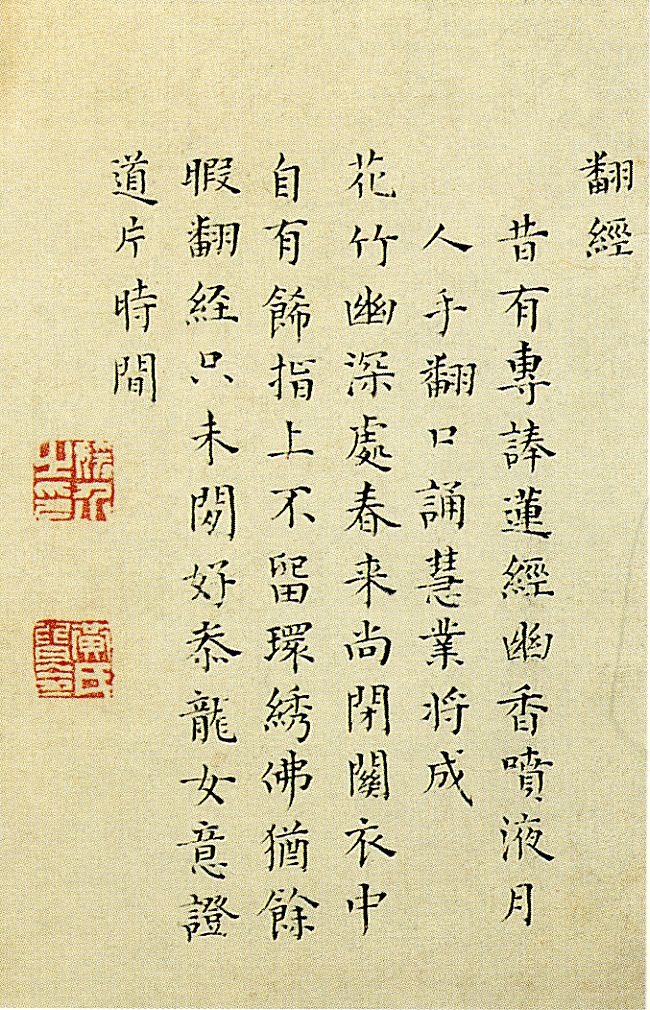 翻經
昔有專諱蓮經幽香噴液月
人手翻口誦慧業將成
花竹幽深處春来尚閉關衣中
自有餙指上不留環綉佛猶餘
暇翻経只未閑好叅龍女意證
道片時間